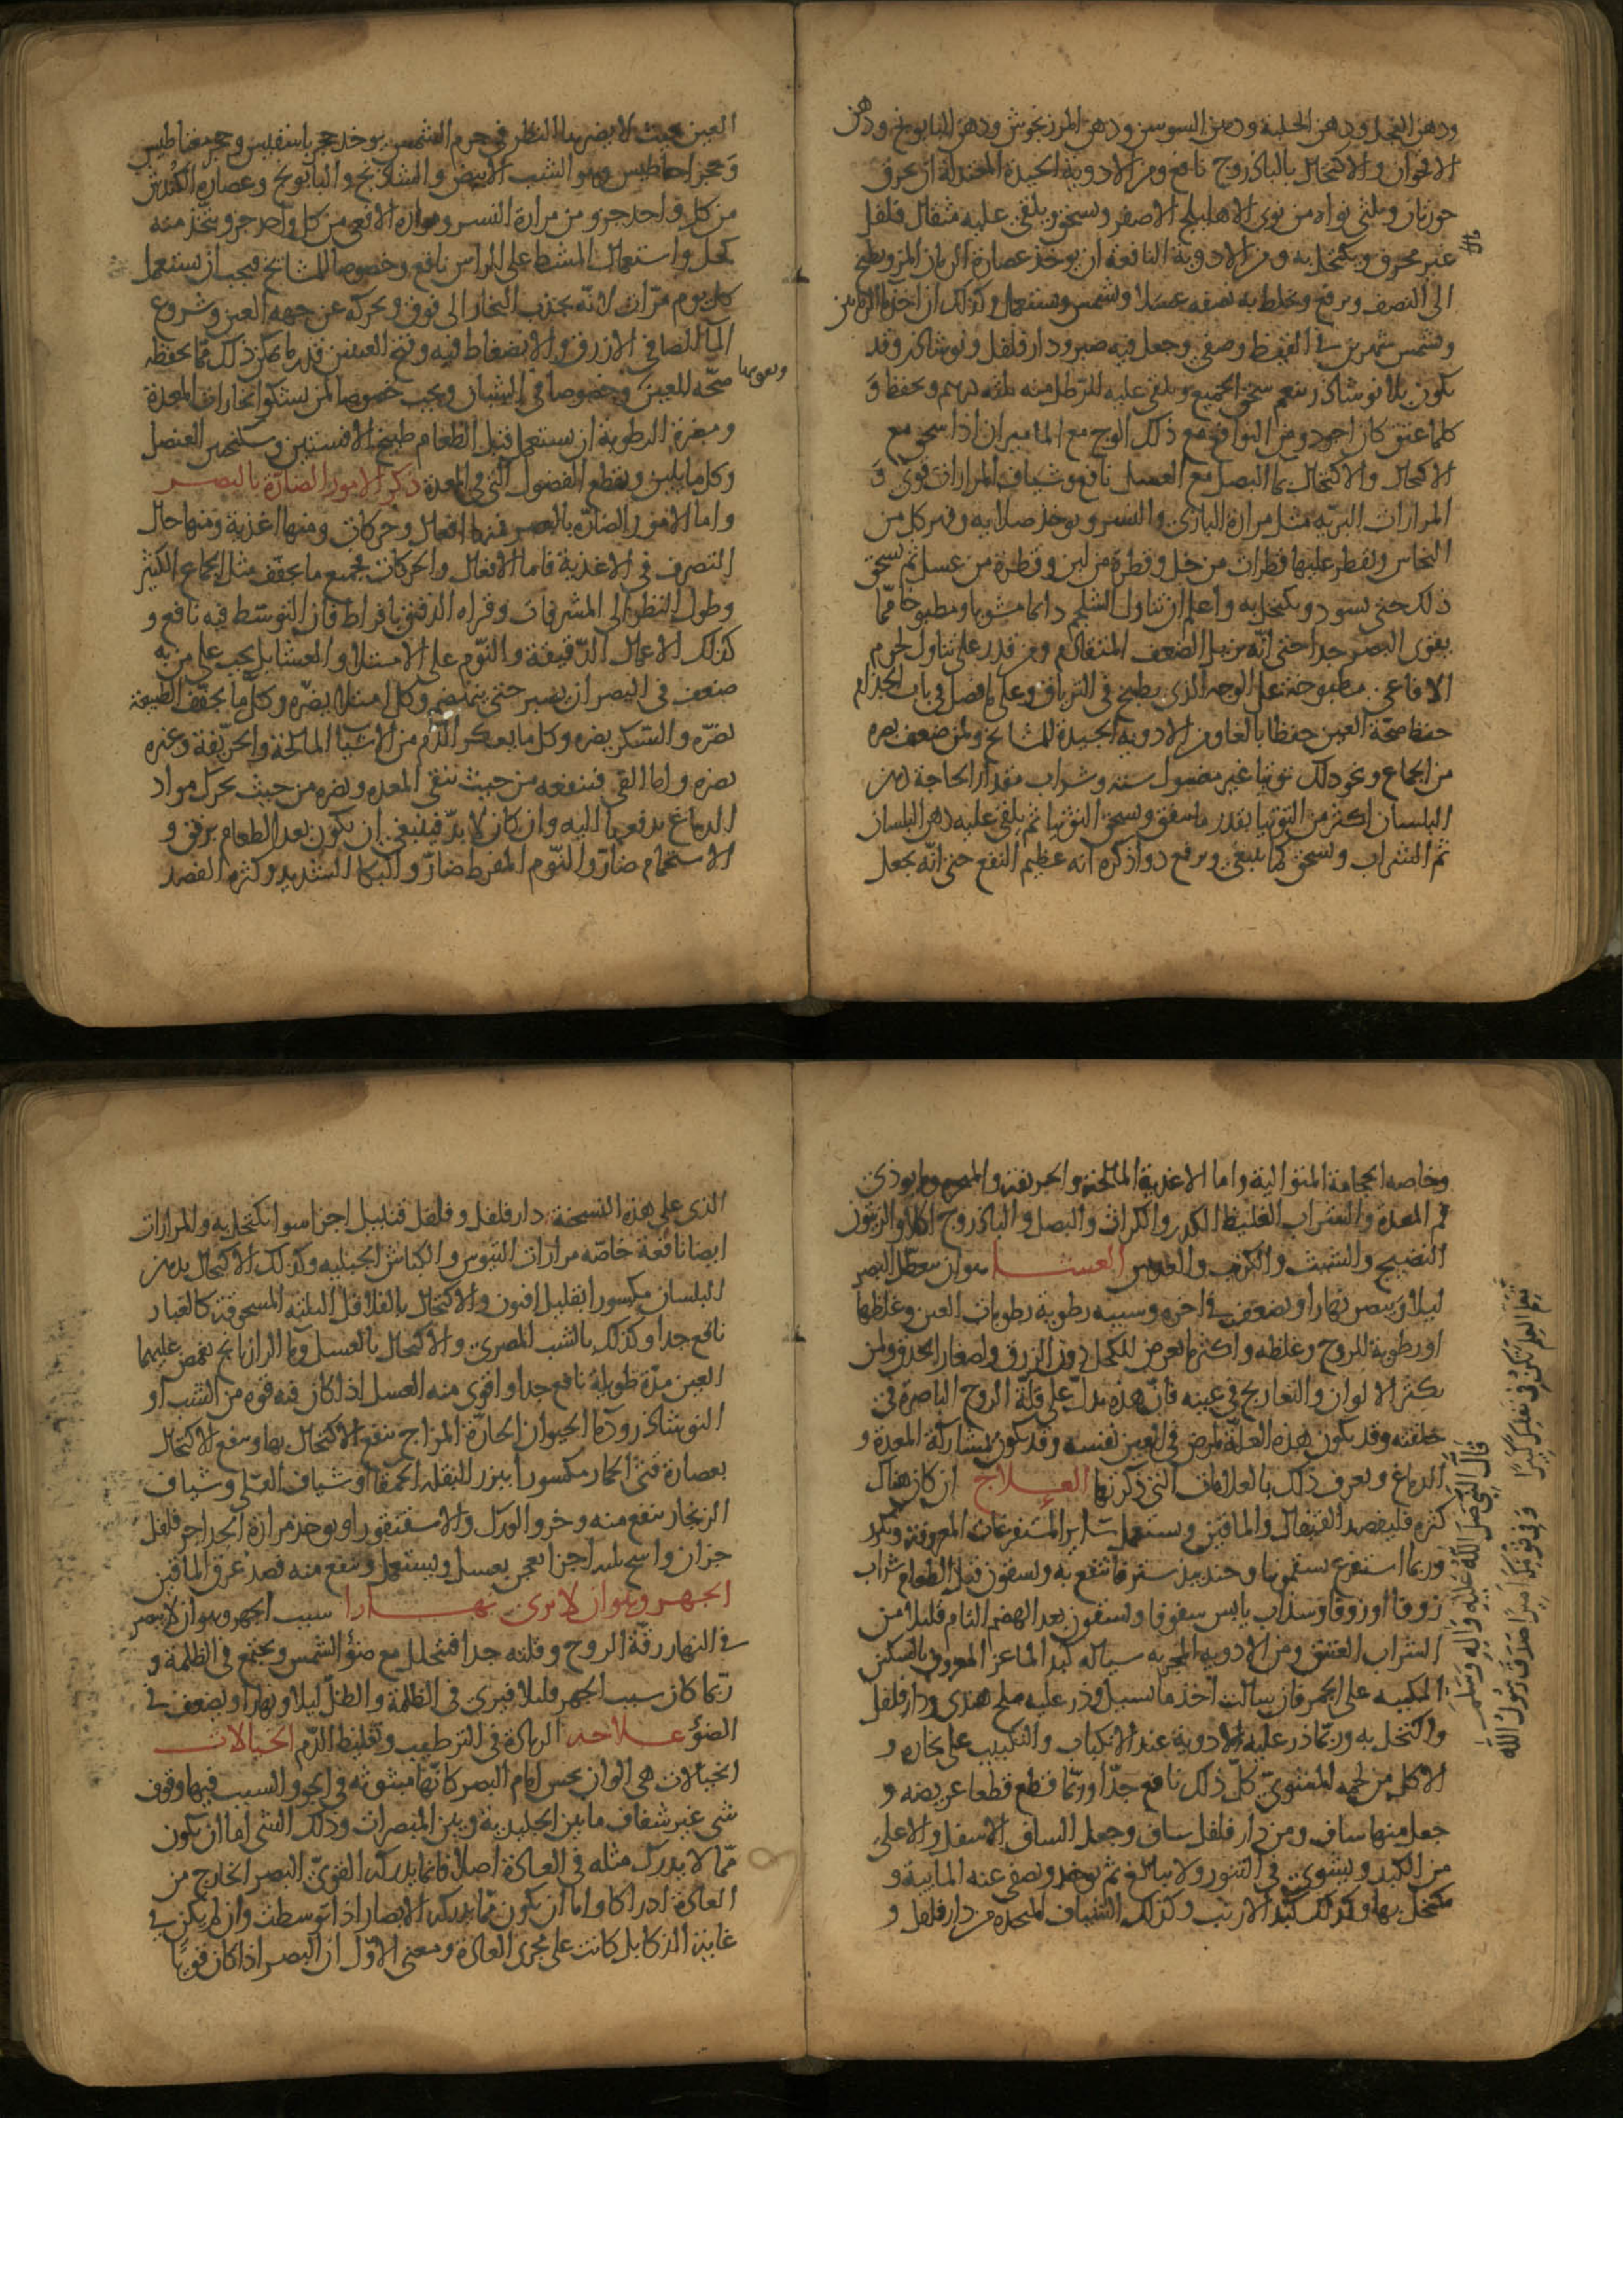 ودهن النخل ودهن الحلبة ودهن السوسن ودهن المرزنجوش ودهن البابونج ودهن
الاقحوان والاكتحال بالباذروج نافع ومن الادوية الجيدة المعتدلة ان يحرق
جوزتان وثلثى نواة من نوى الاهليلج الاصفر ويسحق ويلقى عليه مثقال فلفل
غير محرق ويكتحل به ومن الادوية النافعة ان يوخذ عصارة الرمان المز ويطبخ
الى النصف ويرفع ويخلط به نصفه عسلا ويشمس ويستعمل وكذلك ان اخذ ماء الرمانين
وشمس شهرين فى القيظ وصفى وجعل فيه صبر ودارفلفل ونوشاذر وقد
يكون بلا نوشاذر ينعم سحق الجميع ويلقى عليه للرطل منه ثلثة دراهم ويحفظ و
كلما عتق كان اجود ومن النوافع مع ذلك الوج مع الماميران اذا سحق مع
الاكتحال والاكتحال بماء البصل مع العسل نافع وشياف المرارات قوى و
المرارات البرية مثل مرارة البازى والنسر ويوخذ صلاية وفهر كل من
النحاس ويقطر عليها قطرات من خل وقطرة من لبن وقطرة من عسل ثم يسحق
ذلك حتى يسود ويكتحل به واعلم ان تناول الشلجم دائما مشويا ومطبوخا مما
يقوى البصر جدا حتى انه يزيل الضعف المتقادم ومن قدر على تناول لحوم
الافاعى مطبوخة على الوجه الذى يطبخ فى الترياق وعلى ما فصل فى باب الجذام
حفظ صحة العين حفظا بالغا ومن الادوية الجيدة للمشايخ ولمن ضعف بصره
من الجماع ونحو ذلك توتيا غير مغسول ستة وشراب مقدار الحاجة دهن
البلسان اكثر من التوتيا بقدر ما يتفق ويسحق التوتيا ثم يلقى عليه دهن البلسان
ثم الشراب ويسحق كما ينبغى ويرفع دواء ذكره انه عظيم النفع حتى انه يجعل
العين بحيث لا يضر بها النظر فى جرم الشمس يوخذ حجر باسفيس وحجر مغناطيس
وحجر احاطيس وهو الشب الابيض والشاذنج والبابونج وعصارة الكندس
من كل واحد جزو ومن مرارة النسر ومرارة الافعى من كل واحد جزو ويتخذ منه
كحل واستعمال المشط على الراس نافع وخصوصا للمشايخ فيجب ان يستعمل
كل يوم مرات لانه يجذب البخار الى فوق ويحركه عن جهة العين وشروع
الماء الصافى الازرق والانضغاط فيه وفتح العينين قدر ما يمكن ذلك مما يحفظ
صحة للعين وخصوصا فى الشبان ويجب خصوصا لمن يشكو بخارات المعدة
ومضرة الرطوبة ان يستعمل قبل الطعام طبيخ الافسنتين وسكنجبين العنصل
وكل ما يلين ويقطع الفضول التى فى المعدة ذكر الامور الضارة بالبصر
واما الامور الضارة بالبصر فمنها افعال وحركات ومنها اغذية ومنها حال
التصرف فى الاغذية فاما الافعال والحركات فجميع ما يجفف مثل الجماع الكثير
وطول النظر الى المشرقات وقراءة الدقيق بافراط فان التوسط فيه نافع و
كذلك الاعمال الدقيقة والنوم على الامتلاء والعشاء بل يجب على من به
ضعف فى البصر ان يصبر حتى ينهضم وكل امتلاء يضره وكل ما يجفف الطبيعة
يضره والسكر يضره وكل ما يعكر الدم من الاشياء المالحة والحريفة وغيره
يضره واما القئ فينفعه من حيث ينقى المعدة ويضره من حيث يحرك مواد
الدماغ يدفعها اليه وان كان لا بد فينبغى ان يكون بعد الطعام برفق و
الاستحمام ضار والنوم المفرط ضار والبكاء الشديد وكثرة الفصد
وخاصة الحجامة المتوالية واما الاغذية المالحة والحريفة والمبخرة وما يوذى
فم المعدة والشراب الغليظ الكدر والكراث والبصل والباذروج اكلا والزيتون
النضيج والشبث والكرنب والعدس العشا هو ان يتعطل البصر
ليلا ويبصر نهارا ويضعف فى اخره وسببه رطوبة رطوبات العين وغلظها
او رطوبة الروح وغلظه واكثر ما يعرض للكحل دون الزرق ولصغار الحدق ولمن
يكثر الالوان والتعاريج فى عينه فان هذه يدل على قلة الروح الباصرة فى
خلقته وقد يكون هذه العلة لمرض فى العين نفسه وقد يكون بمشاركة المعدة و
الدماغ ويعرف ذلك بالعلامات التى ذكرناها العلاج ان كان هناك
كثرة فليفصد القيفال والماقين ويستعمل ساير المستفرغات المعروفة ويكرر
وربما استفرغ بسقمونيا وجندبيدستر فانتفع به ويسقون قبل الطعام شراب
زوفا او زوفا وسذاب يابس سفوفا ويسقون بعد الهضم التام قليلا من
الشراب العتيق ومن الادوية المجربة سيالة كبد الماعز المغروز بالسكين
المكببة على الجمر فاذا سالت اخذ ما يسيل وذر عليه ملح هندى ودارفلفل
واكتحل به وربما ذر عليه الادوية عند الانكباب والتكبيب على بخاره و
الاكل من لحمه المشوى كل ذلك نافع جدا وربما قطع قطعا عريضة و
جعل منها ساف ومن دارفلفل ساف وجعل الساف الاسفل والاعلى
من الكبد ويشوى فى التنور ولا يبالغ ثم يوخذ ويصفى عنه المايية و
يكتحل بها وكذلك كبد الارنب وكذلك الشياف المتخذة من دارفلفل و
قال النبى صلى الله عليه واله وسلم
الذى على هذه النسخة دارفلفل وفلفل قنبيل اجزا سوا يكتحل به والمرارات
ايضا نافعة خاصة مرارات التيوس والكباش الجبلية وكذلك الاكتحال بدهن
البلسان مكسورا بقليل افيون والاكتحال بالفلافل الثلثة المسحوقة كالغبار
نافع جدا وكذلك بالشب المصرى والاكتحال بالعسل وماء الرازيانج يغمض عليهما
العين مدة طويلة نافع جدا واقوى منه العسل اذا كان فيه قوة من الشب او
النوشاذر ودماء الحيوان الحارة المزاج ينفع الاكتحال بها وينفع الاكتحال
بعصارة قثى الحمار مكسورا ببزر البقلة الحمقا او شياف القلى وشياف
الزنجار ينفع منه وخرو الورل والاسقنقور او يوخذ مرارة الحدا جز فلفل
جزان واشج ثلثة اجزا يعجن بعسل ويستعمل وينفع منه فصد عرق الماقين
الجهر وهو ان لا يرى نهارا سبب الجهر وهو ان لا يبصر
فى النهار رقة الروح وقلته جدا فيتحلل مع ضوء الشمس ويجتمع فى الظلمة و
ربما كان سبب الجهر قليلا فيرى فى الظلمة والظل ليلا ونهارا ويضعف فى
الضوء علاجه الزيادة فى الترطيب وتغليظ الدم الخيالات
الخيالات هى الوان يحس امام البصر كانها مبثوثة فى الجو والسبب فيها وقوف
شى غير شفاف ما بين الجليدية وبين المبصرات وذلك الشى اما ان يكون
مما لا يدرك مثله فى العادة اصلا فانما يدركه القوى البصر الخارج من
العادة ادراكا واما ان يكون مما يدركه الابصار اذا توسطت وان لم يكن فى
غاية الذكا بل كانت على مجرى العادة ومعنى الاول ان البصر اذا كان قويا